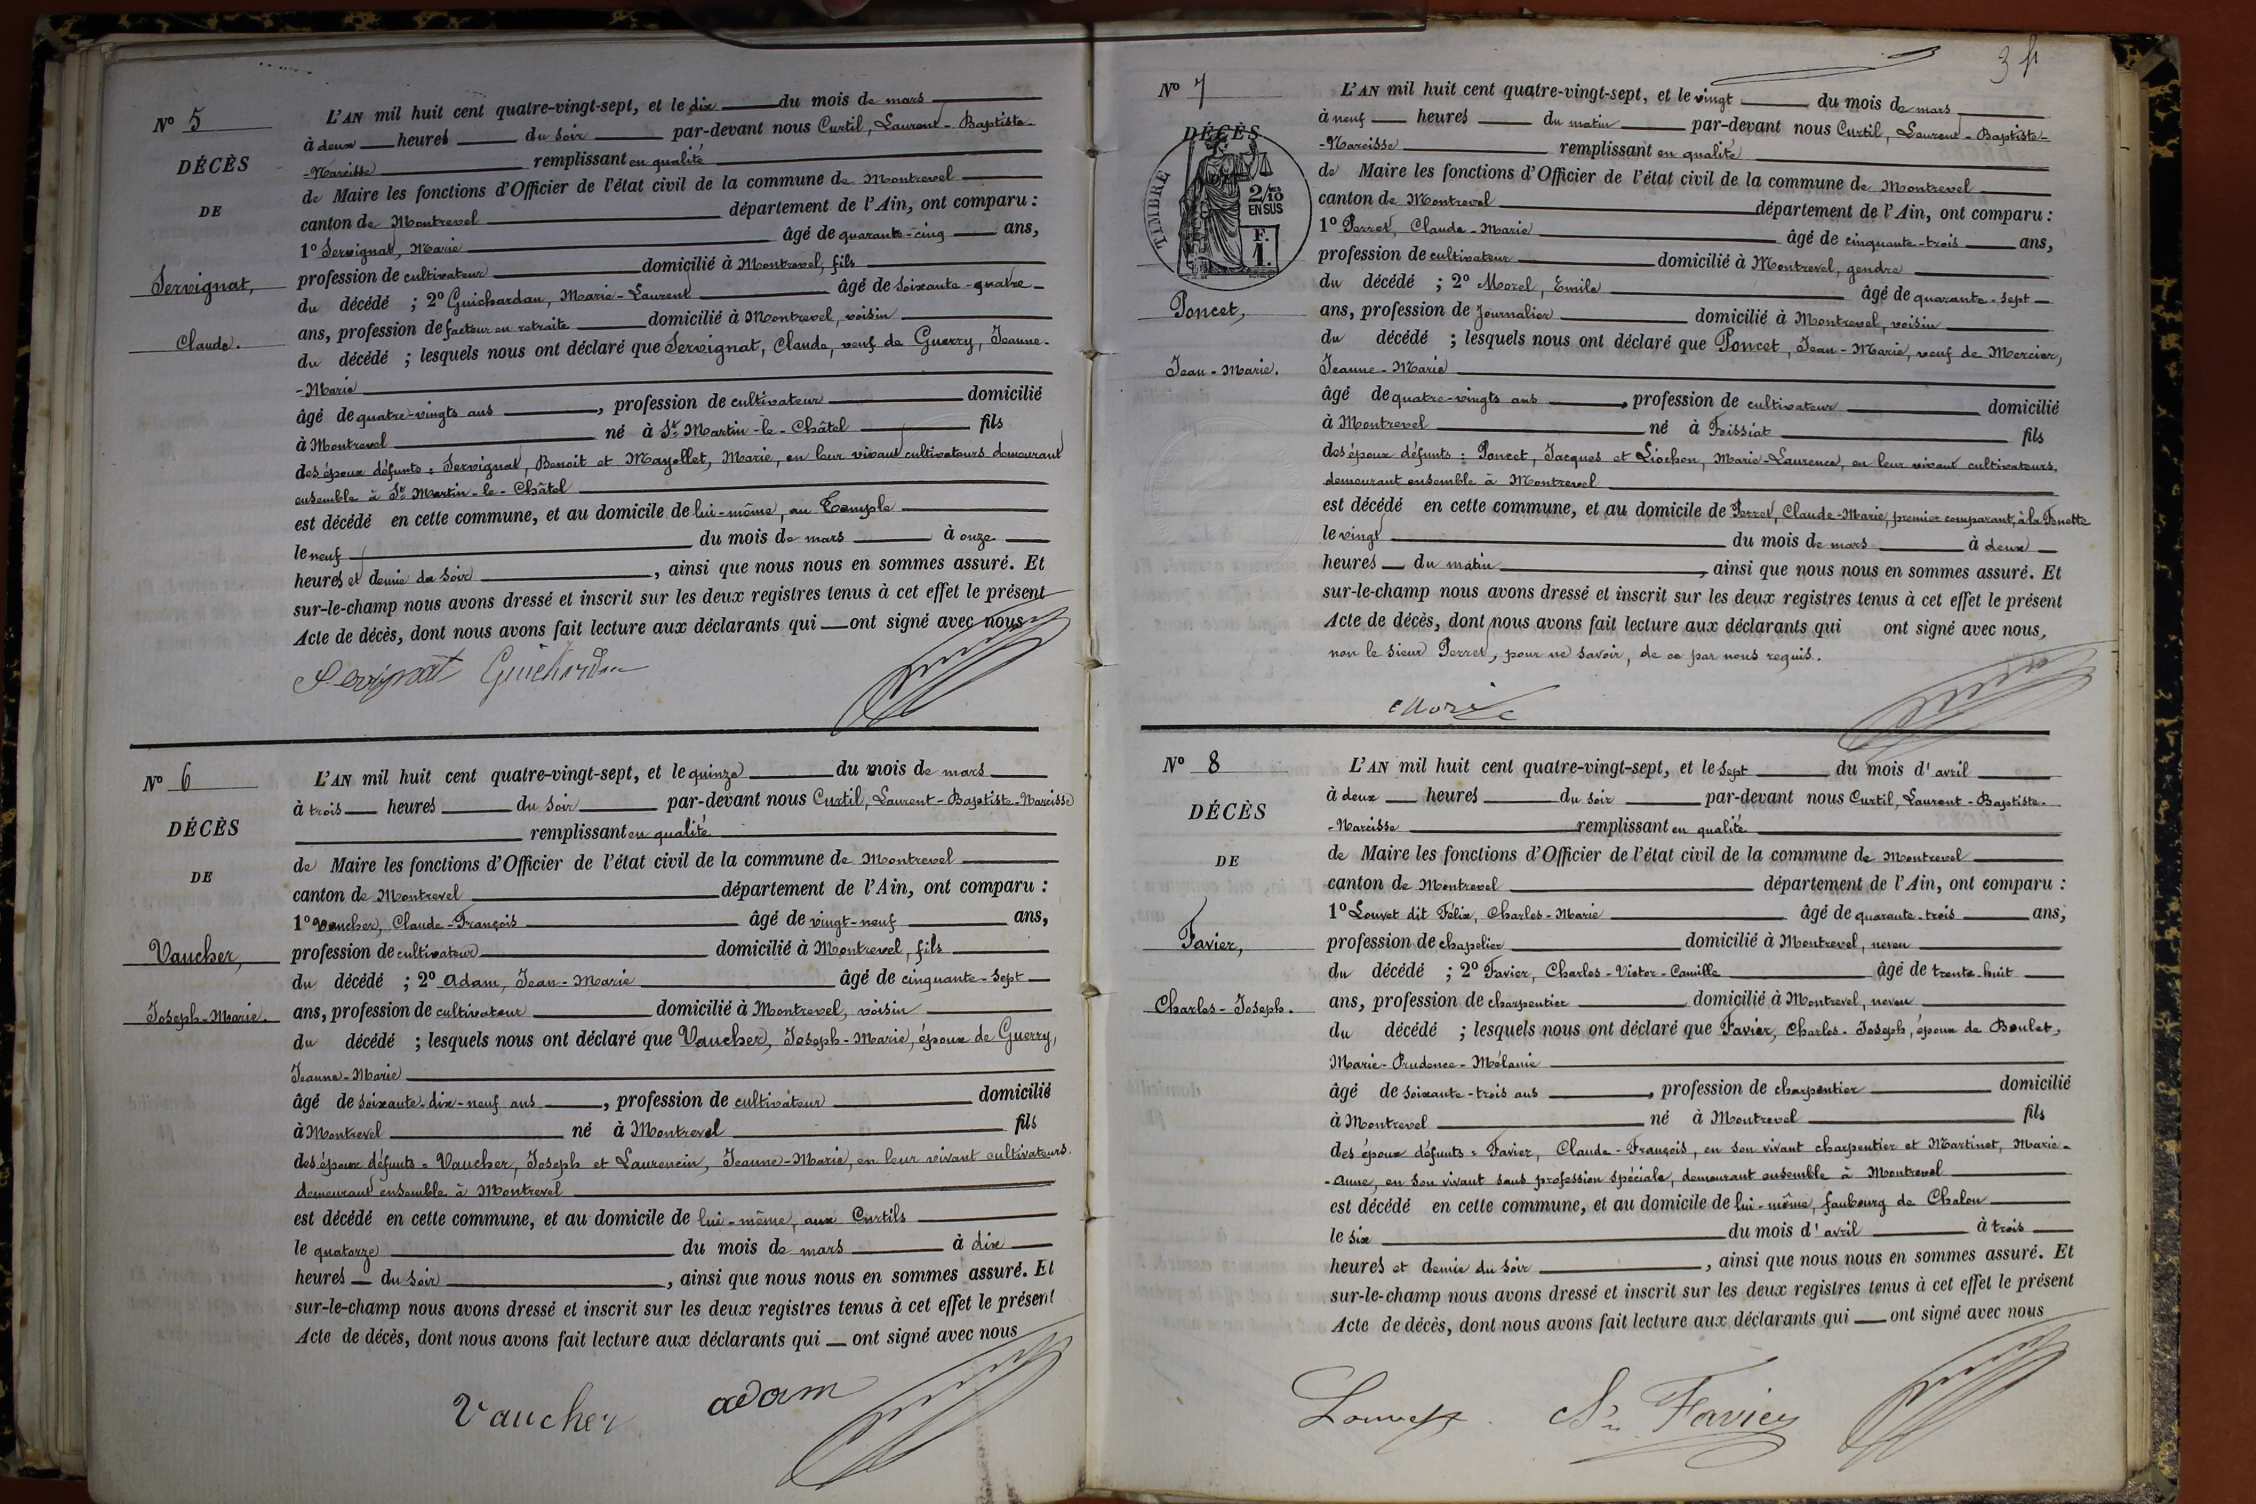 Nº 5
DÉCÈS
DE
Servignat,
Claude.
L'AN mil huit cent quatre-vingt-sept, et le dix du mois de mars
à deux heures du soir par-devant nous Curtil, Laurent-Baptiste-
-Narcisse remplissant en qualité
de Maire les fonctions d'Officier de l'état civil de la commune de Montrevel
canton de Montrevel département de l'Ain, ont comparu :
1º Servignat, Marie âgé de quarante-cinq ans,
profession de cultivateur domicilié à Montrevel, fils
du décédé ; 2º Guichardan, Marie-Laurent âgé de soixante-quatre
ans, profession de facteur en retraite domicilié à Montrevel, voisin
du décédé ; lesquels nous ont déclaré que Servignat, Claude, veuf de Guerry, Jeanne-
-Marie
âgé de quatre-vingts ans , profession de cultivateur domicilié
à Montrevel né à St Martin-le-Châtel fils
des époux défunts : Servignat, Benoit et Mayollet, Marie, en leur vivant cultivateurs demeurant
ensemble à St Martin-le-Châtel
est décédé en cette commune, et au domicile de lui-même, au Temple
le neuf du mois de mars à onze
heures et demie du soir , ainsi que nous nous en sommes assuré. Et
sur-le-champ nous avons dressé et inscrit sur les deux registres tenus à cet effet le présent
Acte de décès, dont nous avons fait lecture aux déclarants qui ont signé avec nous
Servignat Guichardan
Nº 6
DÉCÈS
DE
Vaucher,
Joseph-Marie.
L'AN mil huit cent quatre-vingt-sept, et le quinze du mois de mars
à trois heures du soir par-devant nous Curtil, Laurent-Baptiste-Narcisse
remplissant en qualité
de Maire les fonctions d'Officier de l'état civil de la commune de Montrevel
canton de Montrevel département de l'Ain, ont comparu :
1º Vaucher, Claude-François âgé de vingt-neuf ans,
profession de cultivateur domicilié à Montrevel, fils
du décédé ; 2º Adam, Jean-Marie âgé de cinquante-sept
ans, profession de cultivateur domicilié à Montrevel, voisin
du décédé ; lesquels nous ont déclaré que Vaucher, Joseph-Marie, époux de Guerry,
Jeanne-Marie
âgé de soixante-dix-neuf ans , profession de cultivateur domicilié
à Montrevel né à Montrevel fils
des époux défunts : Vaucher, Joseph et Laurencin, Jeanne-Marie, en leur vivant cultivateurs
demeurant ensemble à Montrevel
est décédé en cette commune, et au domicile de lui-même, aux Curtils
le quatorze du mois de mars à dix
heures du soir , ainsi que nous nous en sommes assuré. Et
sur-le-champ nous avons dressé et inscrit sur les deux registres tenus à cet effet le présent
Acte de décès, dont nous avons fait lecture aux déclarants qui ont signé avec nous
Vaucher adam
34
Nº 7
DÉCÈS
TIMBRE
2/10
EN SUS
F.
1.
Poncet,
Jean-Marie.
L'AN mil huit cent quatre-vingt-sept, et le vingt du mois de mars
à neuf heures du matin par-devant nous Curtil, Laurent-Baptiste-
-Narcisse remplissant en qualité
de Maire les fonctions d'Officier de l'état civil de la commune de Montrevel
canton de Montrevel département de l'Ain, ont comparu :
1º Perret, Claude-Marie âgé de cinquante-trois ans,
profession de cultivateur domicilié à Montrevel, gendre
du décédé ; 2º Morel, Emile âgé de quarante-sept
ans, profession de journalier domicilié à Montrevel, voisin
du décédé ; lesquels nous ont déclaré que Poncet, Jean-Marie, veuf de Mercier,
Jeanne-Marie
âgé de quatre-vingts ans , profession de cultivateur domicilié
à Montrevel né à Foissiat fils
des époux défunts : Poncet, Jacques et Liochon, Marie-Laurence, en leur vivant cultivateurs,
demeurant ensemble à Montrevel
est décédé en cette commune, et au domicile de Perret, Claude-Marie, premier comparant, à la
le vingt du mois de mars à deux
heures du matin , ainsi que nous nous en sommes assuré. Et
sur-le-champ nous avons dressé et inscrit sur les deux registres tenus à cet effet le présent
Acte de décès, dont nous avons fait lecture aux déclarants qui ont signé avec nous,
non le sieur Perret, pour ne savoir, de ce par nous requis.
Nº 8
DÉCÈS
DE
Favier,
Charles-Joseph.
L'AN mil huit cent quatre-vingt-sept, et le sept du mois d'avril
à deux heures du soir par-devant nous Curtil, Laurent-Baptiste-
-Narcisse remplissant en qualité
de Maire les fonctions d'Officier de l'état civil de la commune de Montrevel
canton de Montrevel département de l'Ain, ont comparu :
1º Louvet dit Félix, Charles-Marie âgé de quarante-trois ans,
profession de chapelier domicilié à Montrevel, neveu
du décédé ; 2º Favier, Charles-Victor-Camille âgé de trente-huit
ans, profession de charpentier domicilié à Montrevel, neveu
du décédé ; lesquels nous ont déclaré que Favier, Charles-Joseph, époux de Boulet,
Marie-Prudence-Mélanie
âgé de soixante-trois ans , profession de charpentier domicilié
à Montrevel né à Montrevel fils
des époux défunts : Favier, Claude-François, en son vivant charpentier et Martinet, Marie-
-Anne, en son vivant sans profession spéciale, demeurant ensemble à Montrevel
est décédé en cette commune, et au domicile de lui-même, faubourg de Chalon
le six du mois d'avril à trois
heures et demie du soir , ainsi que nous nous en sommes assuré. Et
sur-le-champ nous avons dressé et inscrit sur les deux registres tenus à cet effet le présent
Acte de décès, dont nous avons fait lecture aux déclarants qui ont signé avec nous
Louvet Favier